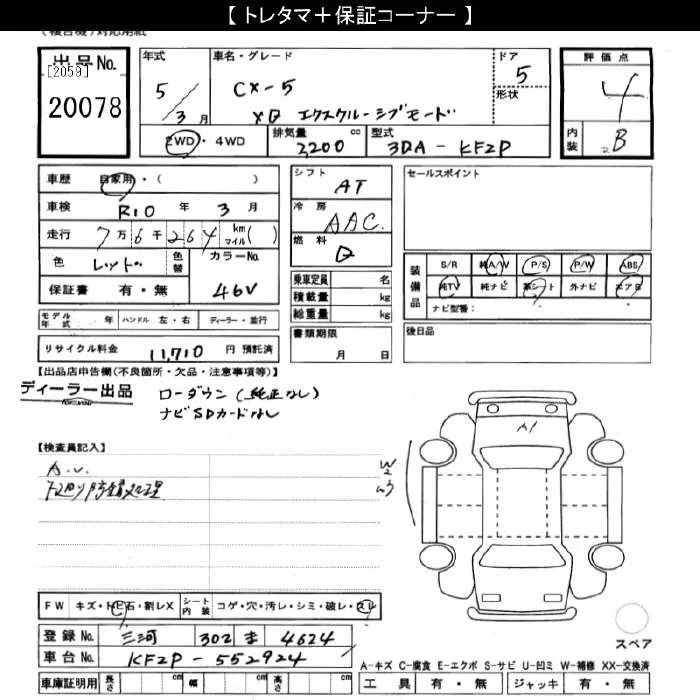 【 トレタマ＋保証コーナー 】
出品No.
[2059]
20078
年式
5/3月
車名・グレード
CX-5
XD エクスクルーシブモード
ドア
5
形状
評価点
4
内装
B
2WD・4WD
排気量 2,200 cc
型式 3DA-KF2P
車歴 自家用・( )
車検 R10年 3月
走行 7万6千264 km マイル( )
色 レッド 色替 カラーNo. 46V
保証書 有・無
シフト AT
冷房 AAC.
燃料 D
乗車定員 名
積載量 kg
総重量 kg
書類期限
月 日
セールスポイント
装備品
S/R 純A/W P/S P/W ABS
純TV 純ナビ 革シート 外ナビ エアB
ナビ型番:
後日品
モデル年式 年 ハンドル 左・右 ディーラー・並行
リサイクル料金 11,710 円 預託済
【出品店申告欄(不良箇所・欠品・注意事項等)】
ディーラー出品
ローダウン(純正なし)
ナビSDカードなし
【検査員記入】
A.U.
下廻り防錆処理
A1
W2
FW キズ・トビ石・割レX シート内装 コゲ・穴・汚レ・シミ・破レ・スレ
登録No. 三河 302 ま 4624
車台No. KF2P-552924
車庫証明用 長さ cm 幅 cm 高さ cm
スペア
A-キズ C-腐食 E-エクボ S-サビ U-凹ミ W-補修 XX-交換済
工具 有・無 ジャッキ 有・無